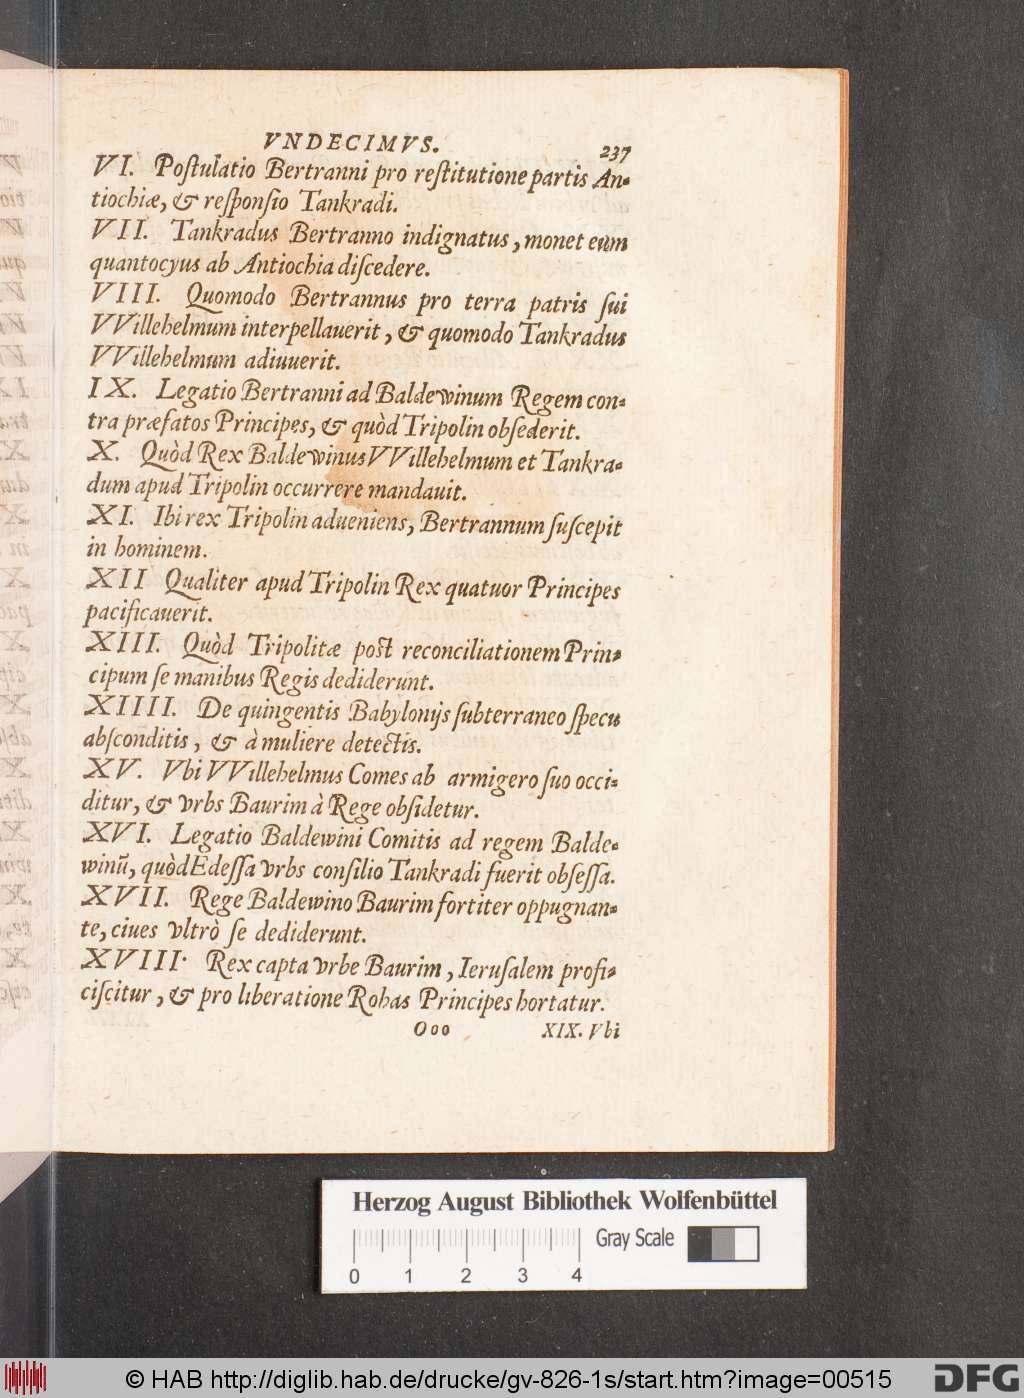 VNDECIMVS.
237
VI. Poſtulatio Bertranni pro reſtitutione partis An-
tiochiæ, & reſponſio Tankradi.
VII. Tankradus Bertranno indignatus, monet eum
quantocyus ab Antiochia diſcedere.
VIII. Quomodo Bertrannus pro terra patris ſui
VVillehelmum interpellauerit, & quomodo Tankradus
VVillehelmum adiuuerit.
IX. Legatio Bertranni ad Baldewinum Regem con-
tra præfatos Principes, & quòd Tripolin obſederit.
X. Quòd Rex Baldewinus VVillehelmum et Tankra-
dum apud Tripolin occurrere mandauit.
XI. Ibi rex Tripolin adueniens, Bertrannum ſuſcepit
in hominem.
XII Qualiter apud Tripolin Rex quatuor Principes
pacificauerit.
XIII. Quòd Tripolitæ poſt reconciliationem Prin-
cipum ſe manibus Regis dediderunt.
XIIII. De quingentis Babylonijs ſubterraneo ſpecu
abſconditis, & à muliere detectis.
XV. Vbi VVillehelmus Comes ab armigero ſuo occi-
ditur, & vrbs Baurim à Rege obſidetur.
XVI. Legatio Baldewini Comitis ad regem Balde-
winũ, quòd Edeſſa vrbs conſilio Tankradi fuerit obſeſſa.
XVII. Rege Baldewino Baurim fortiter oppugnan-
te, ciues vltrò ſe dediderunt.
XVIII. Rex capta vrbe Baurim, Ieruſalem profi-
ciſcitur, & pro liberatione Rohas Principes hortatur.
Ooo
XIX. Vbi
Herzog August Bibliothek Wolfenbüttel
Gray Scale
0 1 2 3 4
© HAB http://diglib.hab.de/drucke/gv-826-1s/start.htm?image=00515
DFG